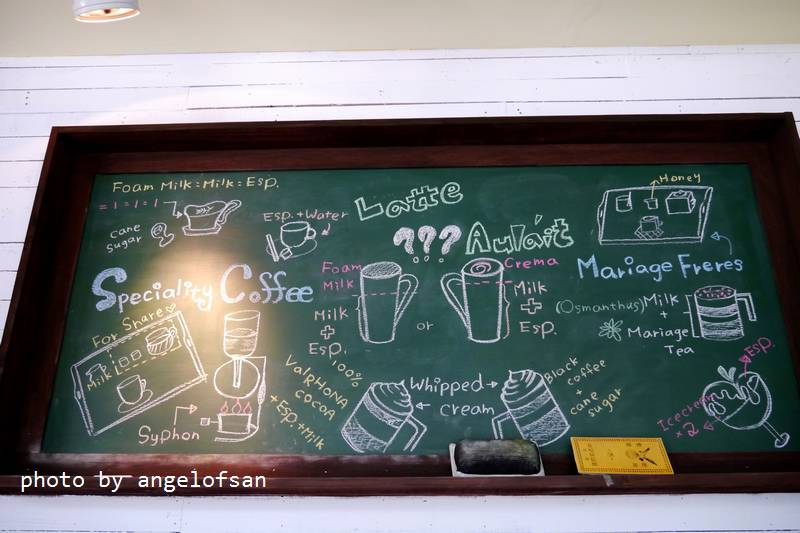 Foam Milk : Milk : Esp.
= 1 = 1 = 1
cane
sugar
Esp. + Water
Latte
???
Aulait
Honey
Mariage Freres
Speciality Coffee
For Share
Milk
Syphon
Foam
Milk
Milk
+
Esp.
or
Crema
Milk
+
Esp.
(Osmanthus) Milk
+
Mariage
Tea
100%
ValRHONA
COCOA
+ Esp. + Milk
Whipped
cream
Black
coffee
+
cane
sugar
Esp.
Icecream
x 2
photo by angelofsan